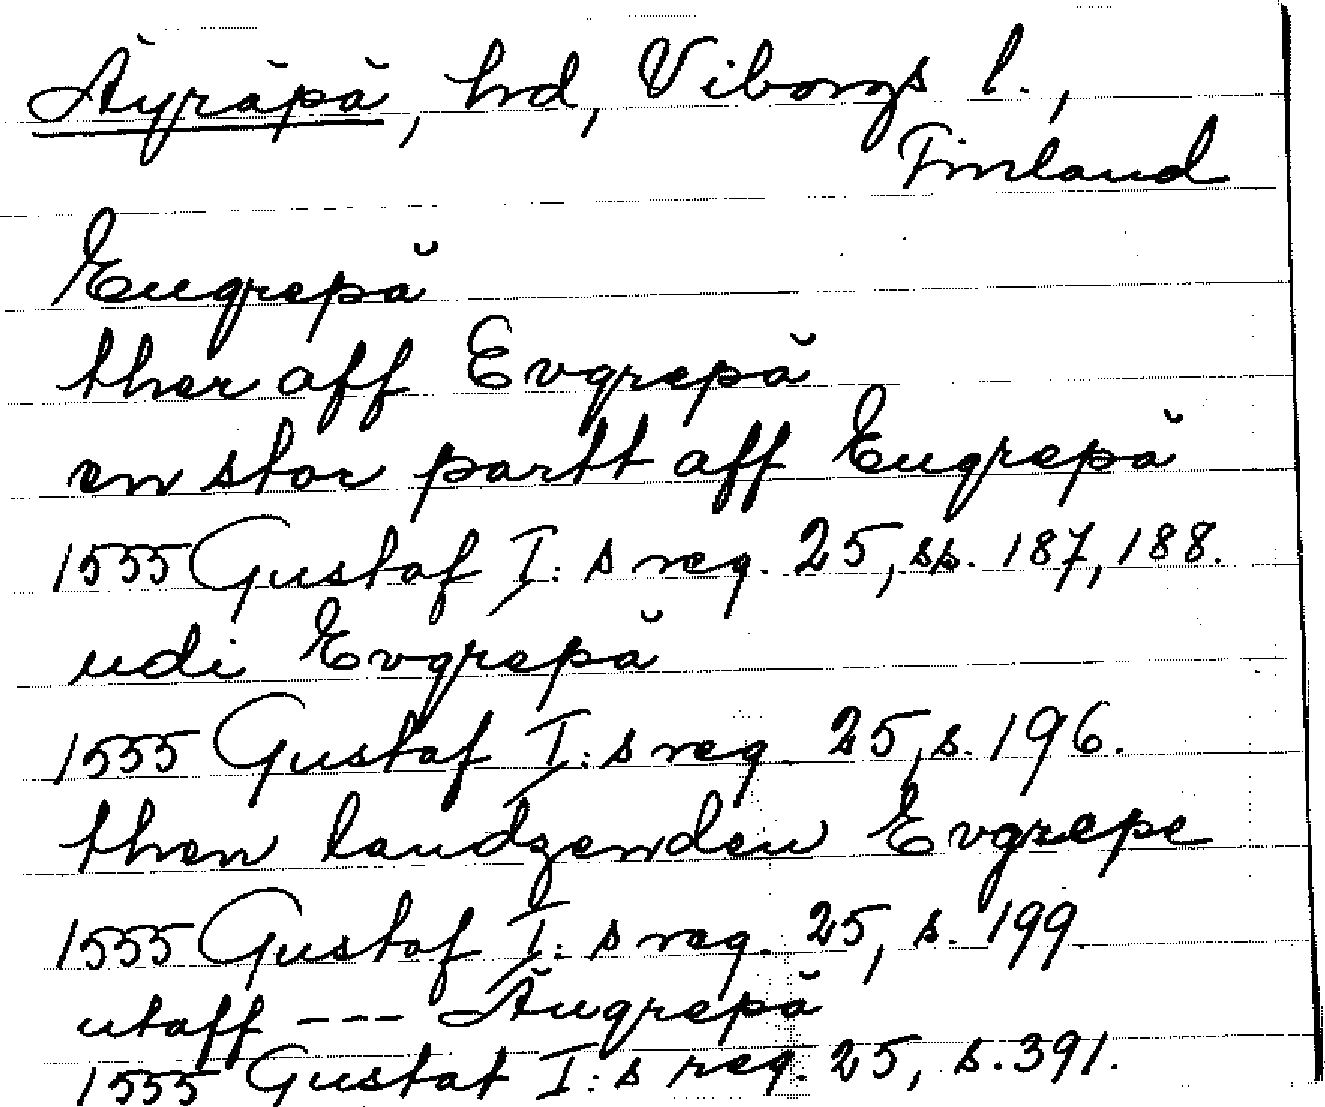 Äyräpä, hd, Viborgs l.,
Finland
Eugrepä
ther aff Evgrepä
en stor partt aff Eugrepä
1555 Gustaf I:s reg. 25, ss. 187, 188.
udi Evgrepä
1555 Gustaf I:s reg. 25, s. 196.
then landzenden Evgrepe
1555 Gustaf I:s reg. 25, s. 199
utaff --- Äugrepä
1555 Gustaf I:s reg. 25, s. 391.